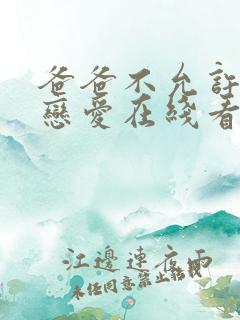 爸爸不允許
戀愛在綫看
江邊連夜雨
未經同意禁止轉載